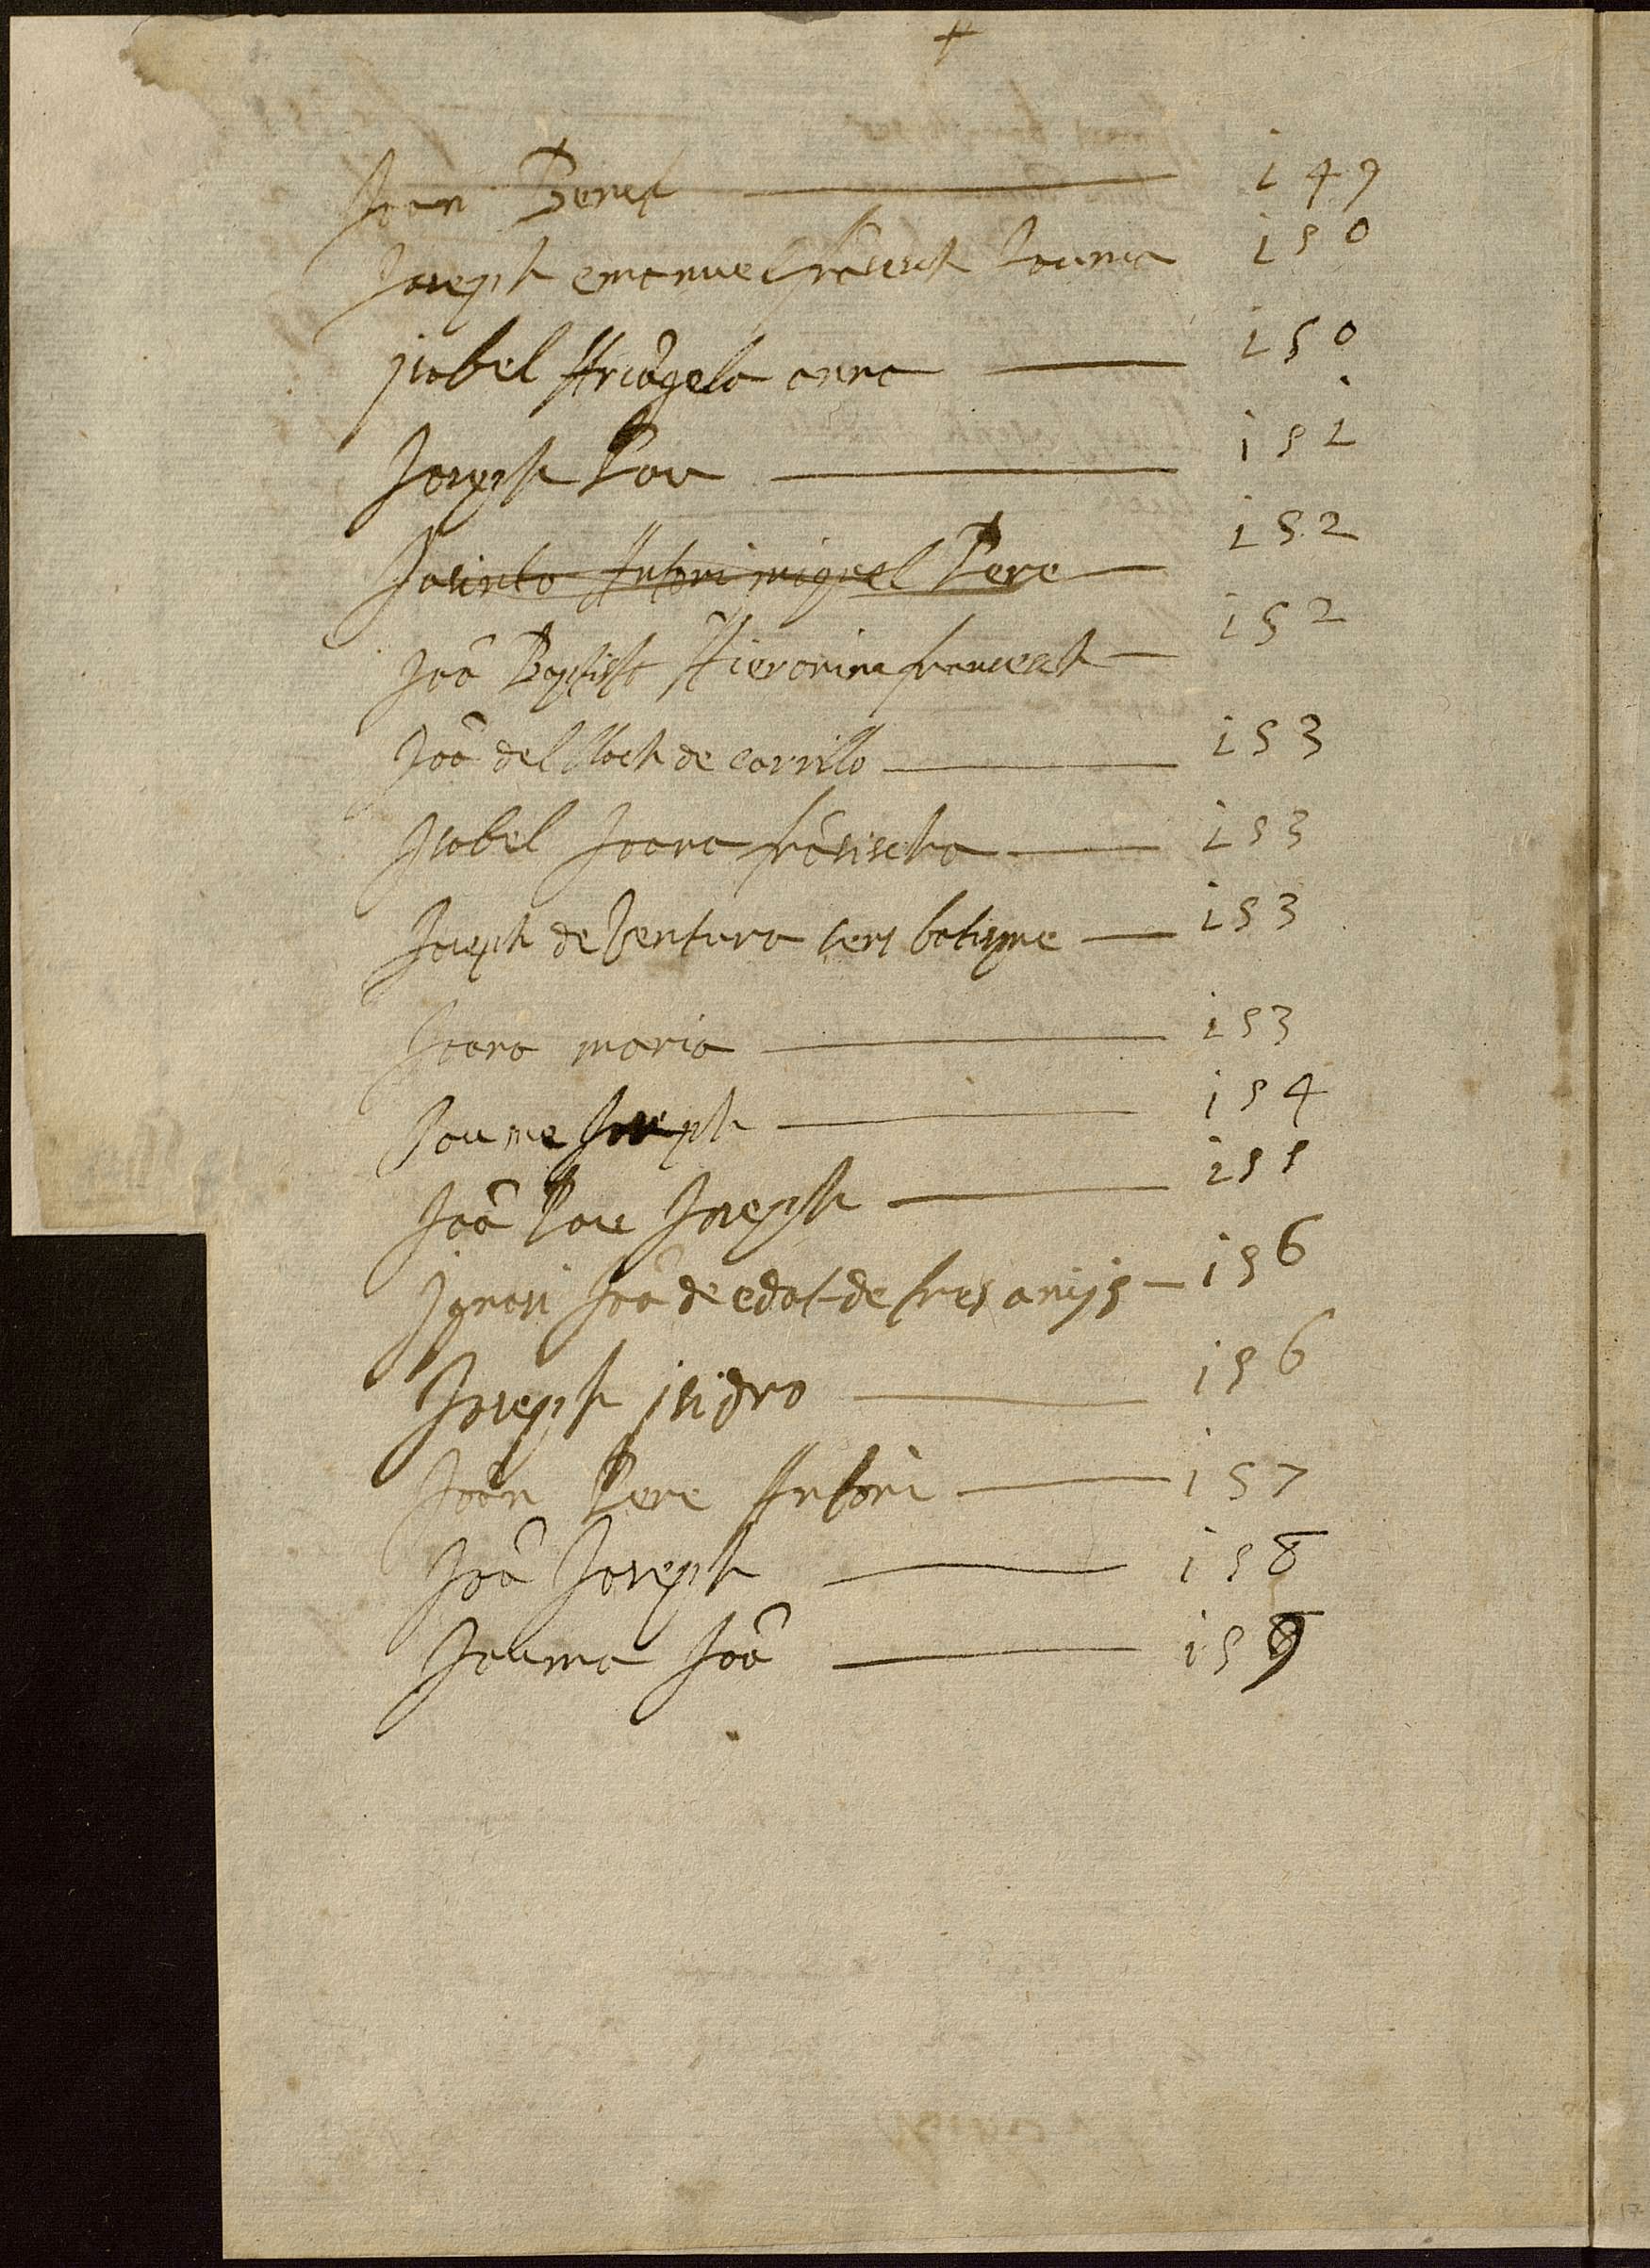 +
Joan Benet 149
Joseph emanuel frãsisch Jauma 150
jsabel Ariãgela anna 150
Joseph Pau 151
Jasinto Antoni miguel Pere 152
Joã Baptista Hieronim francesch 152
Joã del lloch de carrillo 153
Jsabel Joana frãsischa 153
Joseph de Ventura sens batisme 153
Joana maria 153
Jaume Joseph 154
Joã Pau Joseph 155
Jgnasi Joã de edat de tres anijs 156
Joseph jsidro 156
Joãn Pere Antoni 157
Joã Joseph 158
Jauma Joã 159